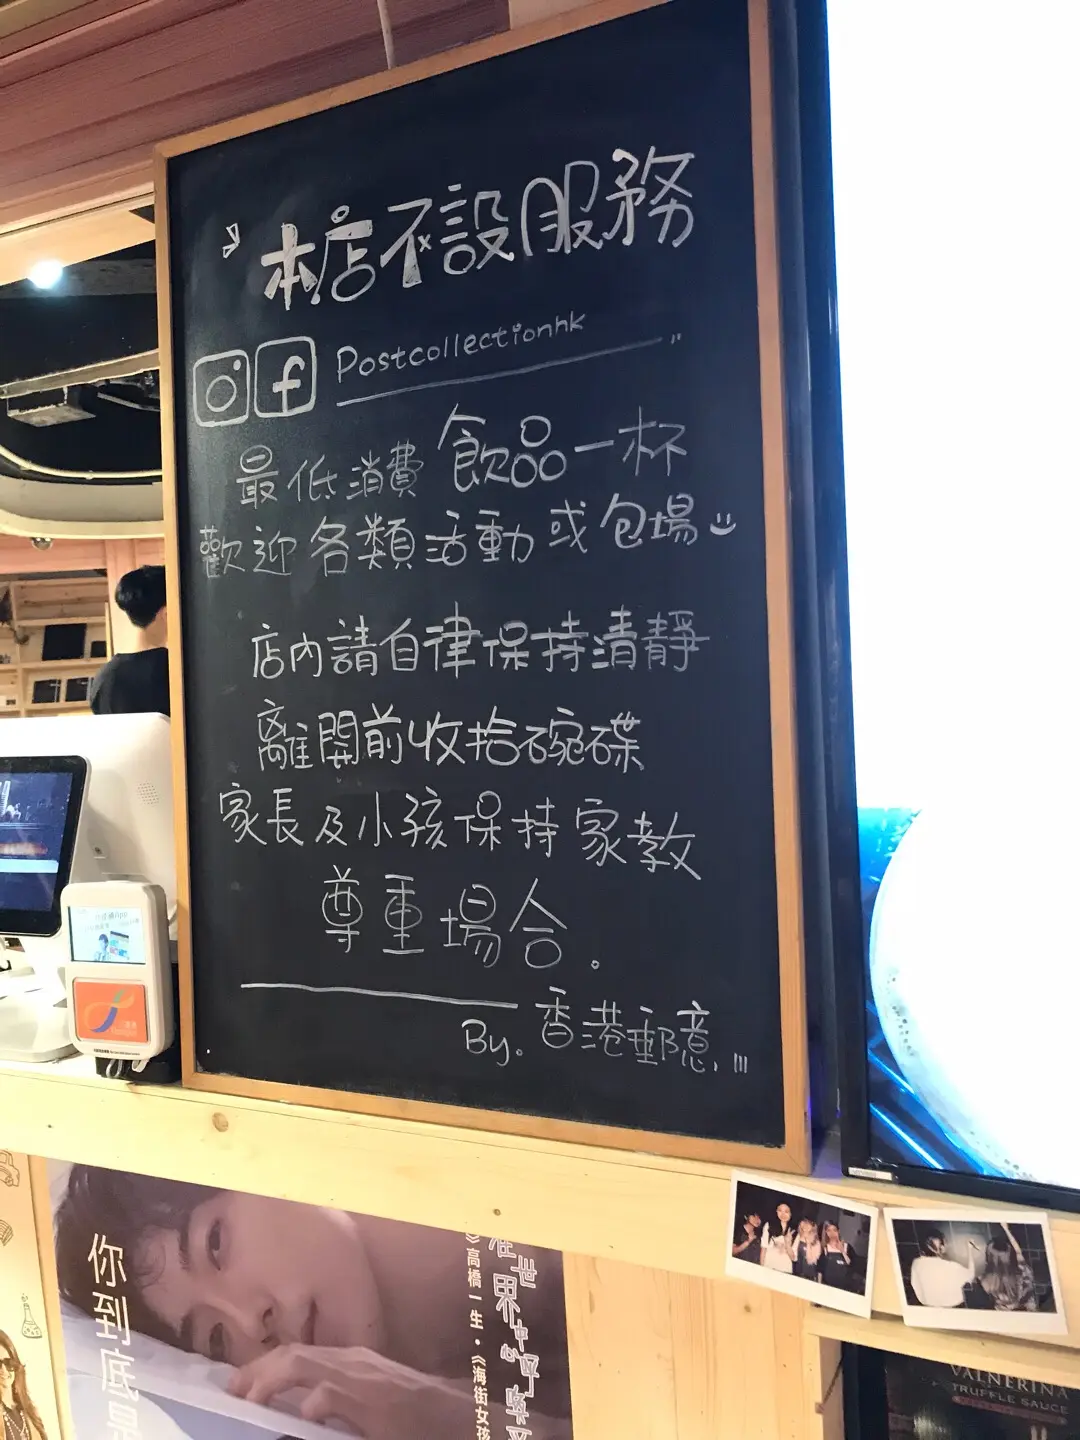 本店不設服務
Postcollectionhk
最低消費飲品一杯
歡迎各類活動或包場
店內請自律保持清靜
離開前收拾碗碟
家長及小孩保持家教
尊重場合。
By. 香港郵意.
你到底是
在世界中心呼喚
》高橋一生・《海街女孩
VALNERINA
TRUFFLE SAUCE